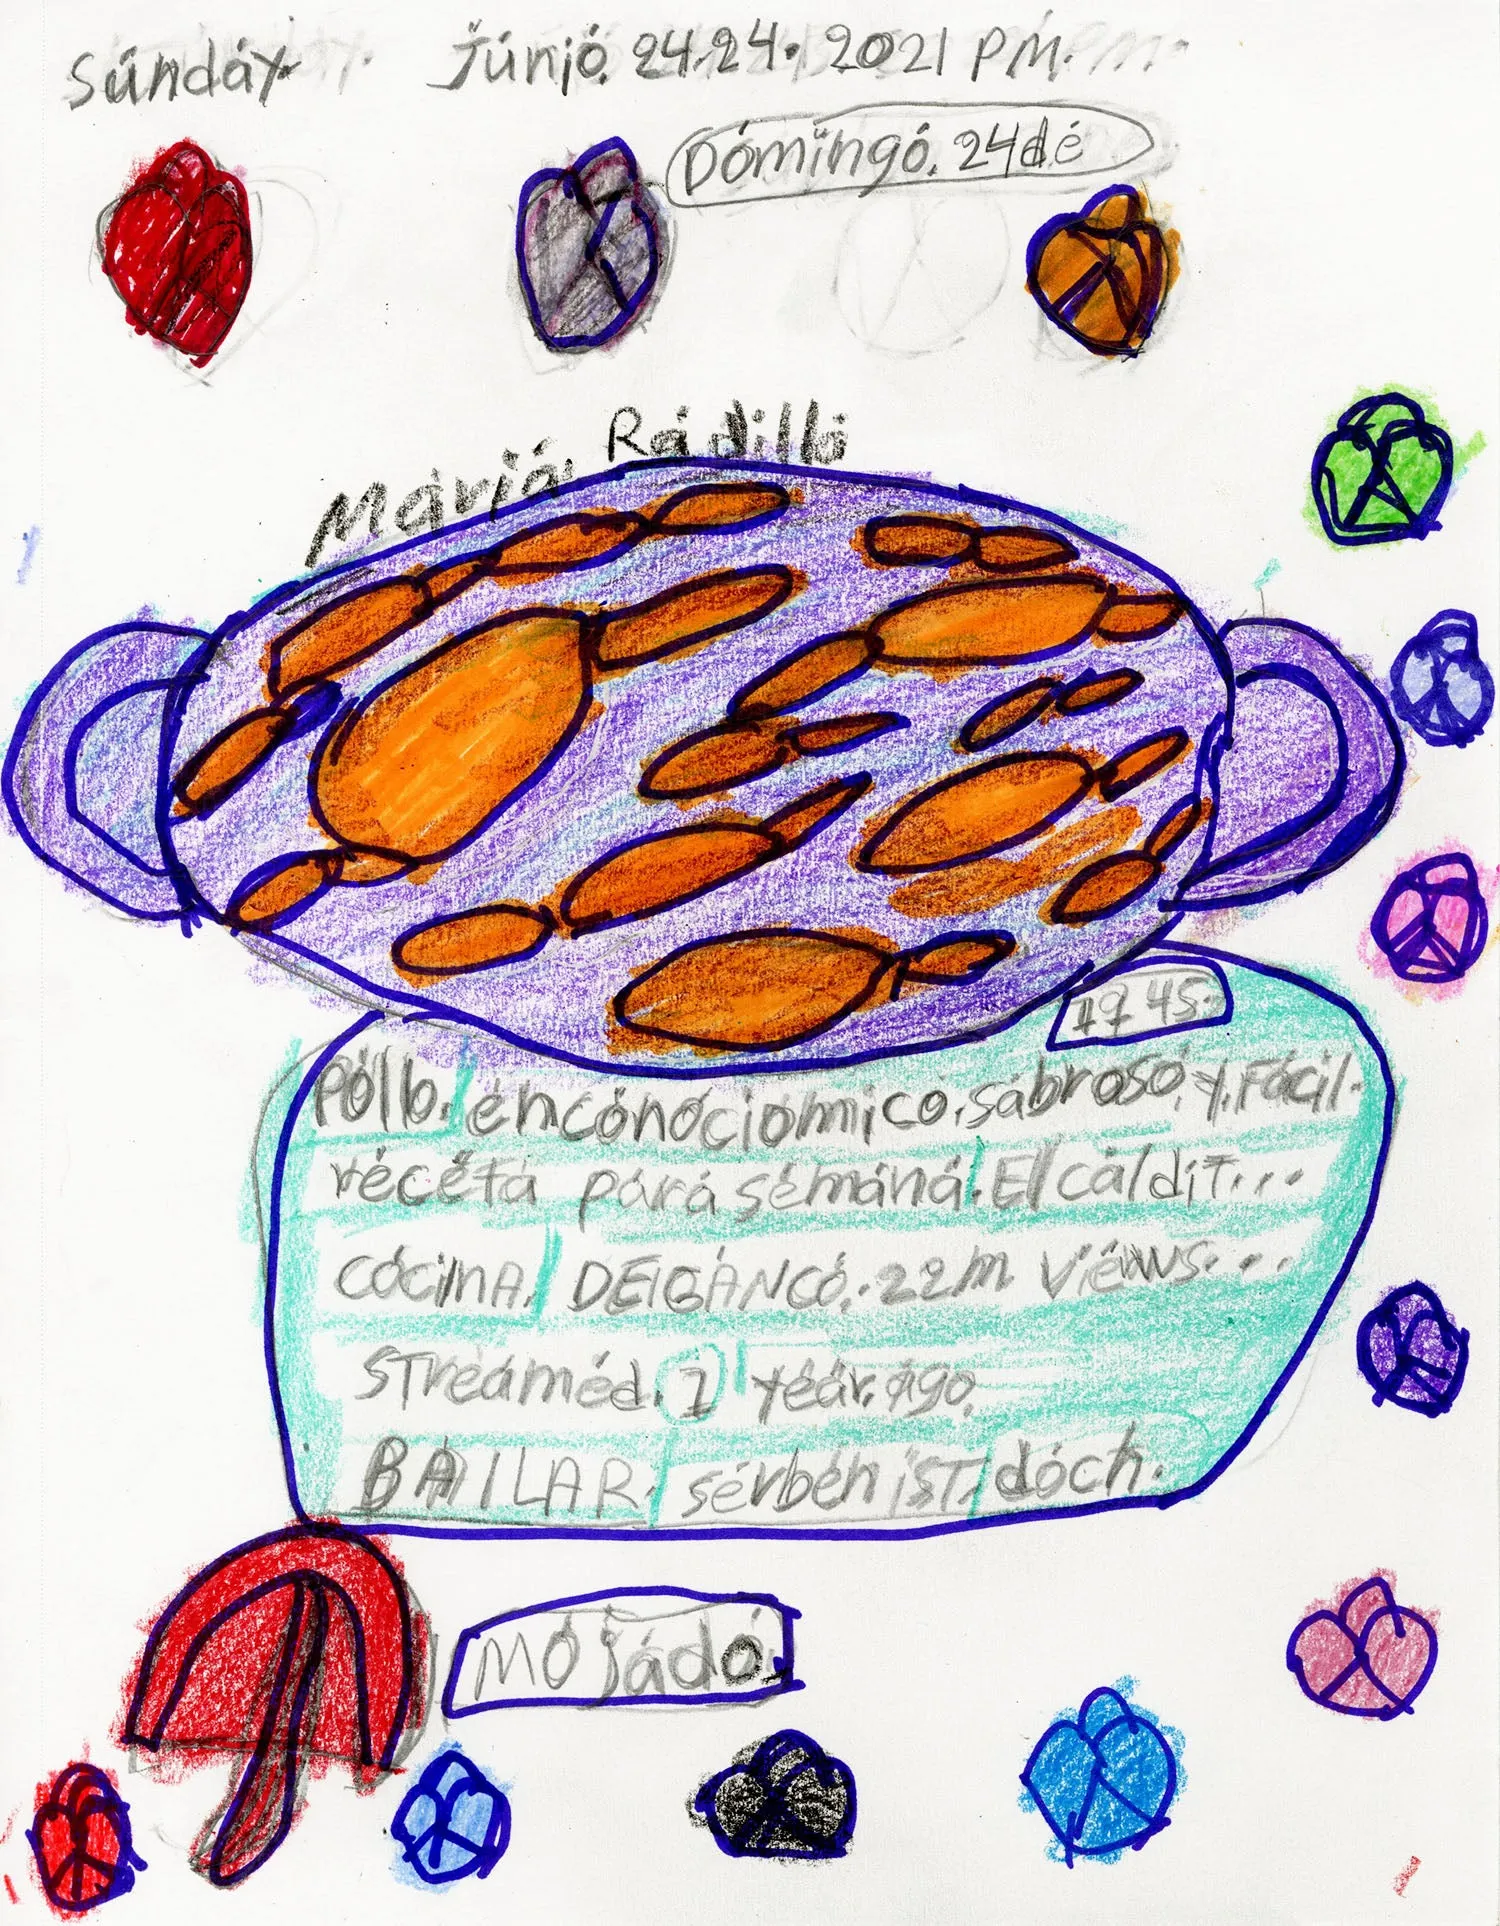 Súndáy. Júnió. 24.24. 2021 PM.
Dómingó. 24dé
Máriá. Rádilló
19 45.
Pólló. énconóciómico. sábrosó, y. Fácil.
récétá párá sémáná. El cáldit...
cóciná. DEIGÁNCÓ. 22m viéws...
streáméd. 1 yéár. ágo.
BÁILAR. sérbén ist. dóch.
Mójádó.